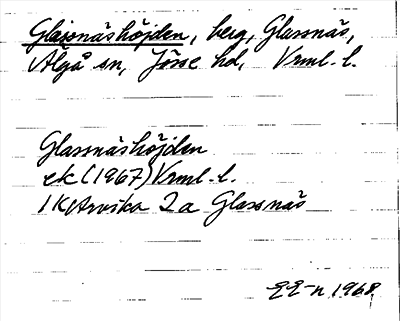 Glassnäshöjden, berg, Glassnäs,
Älgå sn, Jösse hd, Vrml. l.
Glassnäshöjden
ek (1967) Vrml. l.
1K Arvika 2a Glassnäs
EE-n 1968